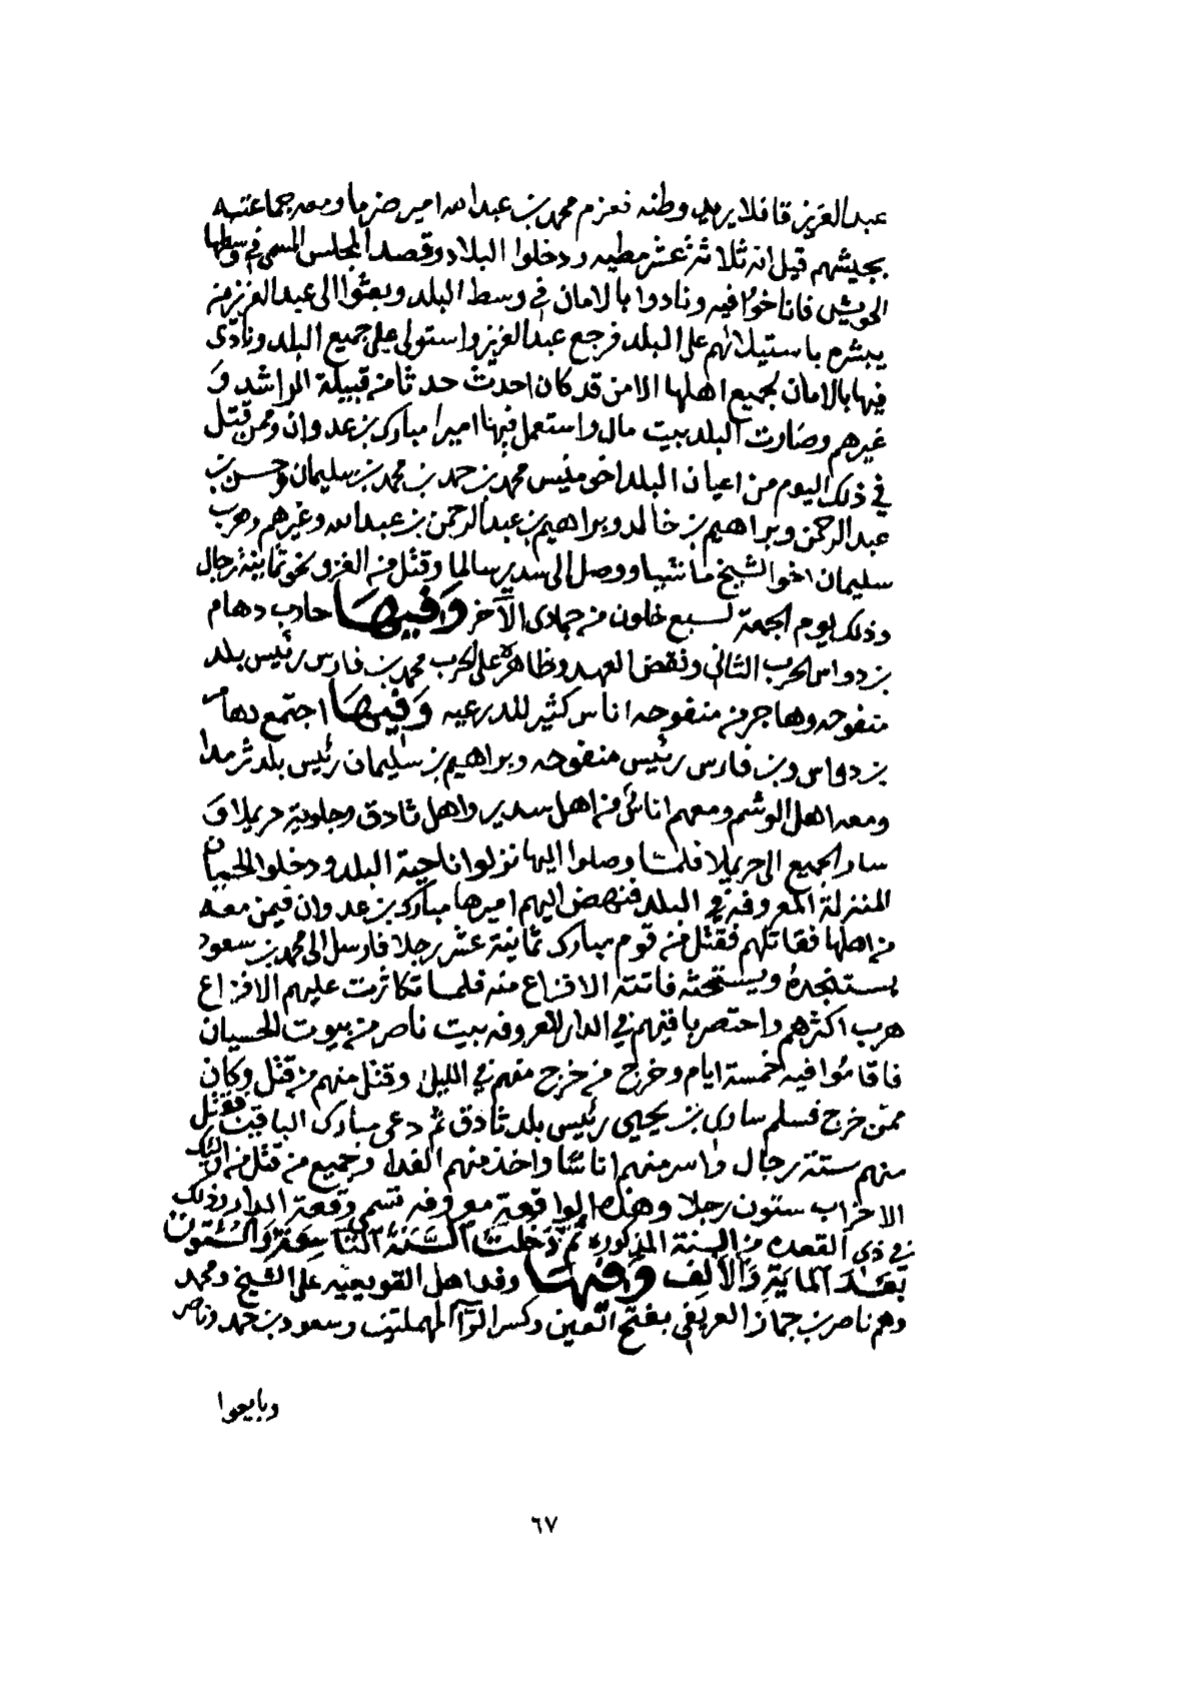 عبدالعزيز قافلا يريد وطنه فعزم محمد بن عبدالله امير ضرما ومعه جماعته
بجيشهم قيل انه ثلاثة عشر مطيه ودخلوا البلاد وقصد المجلس المسمى في وسطها
الحويش فاناخوا فيه ونادوا بالامان في وسط البلد وبعثوا الى عبدالعزيز من
يبشره باستيلائهم على البلد فرجع عبدالعزيز واستولى على جميع البلد ونادى
فيها بالامان لجميع اهلها الا من قد كان احدث حدثا من قبيلة الراشد و
غيرهم وصارت البلد بيت مال واستعمل فيها اميرا مبارك بن عدوان وممن قتل
في ذلك اليوم من اعيان البلد اخو منيس محمد بن حمد بن محمد بن سليمان وحسن بن
عبدالرحمن وبراهيم بن خالد وبراهيم بن عبدالرحمن بن عبدالله وغيرهم وهرب
سليمان اخو الشيخ ماشيا ووصل الى سدير سالما وقتل من الغزو نحو ثمانية رجال
وذلك يوم الجمعة لسبع خلون من جمادى الآخر وَفيهَا حارب دهام
بن دواس الحرب الثاني ونقض العهد وظاهره على الحرب محمد بن فارس رئيس بلد
منفوحه وهاجر من منفوحه اناس كثير للدرعيه وَفيهَا اجتمع دهام
بن دواس وبن فارس رئيس منفوحه وبراهيم بن سليمان رئيس بلد ثرمدا
ومعه اهل الوشم ومعهم اناس من اهل سدير واهل ثادق وجلوية حريملا و
سار الجميع الى حريملا فلما وصلوا اليها نزلوا ناحية البلد ودخلوا الحسيان
المنزلة المعروفة في البلد فنهض اليهم اميرها مبارك بن عدوان فيمن معه
من اهلها فقاتلهم فقتل من قوم مبارك ثمانية عشر رجلا فارسل الى محمد بن سعود
يستنجده ويستحثه فاتته الافزاع منه فلما تكاثرت عليهم الافزاع
هرب اكثرهم واحتصر باقيهم في الدار المعروفه ببيت ناصر من بيوت الحسيان
فاقاموا فيه خمسة ايام وخرج من خرج منهم في الليل وقتل منهم من قتل وكان
ممن خرج فسلم ساري بن يحيى رئيس بلد ثادق ثم دعى مبارك الباقين فقتل
منهم ستة رجال واسر منهم اناسا واخذ منهم الفدا وجميع من قتل من اولئك
الاحزاب ستون رجلا وهذه الواقعة معروفه تسمى وقعة الدار وذلك
في ذي القعده من السنة المذكوره ثم دَخَلت السَّنَةُ التاسِعَةُ وَالسُتّون
بَعْدَ المايَةِ وَالألِف وَفيهَا وفد اهل القويعيه على الشيخ ومحمد
وهم ناصر بن جماز العريفي بفتح العين وكسر الرآ المهملتين وسعود بن حمد وناصر
وبايعوا
٦٧